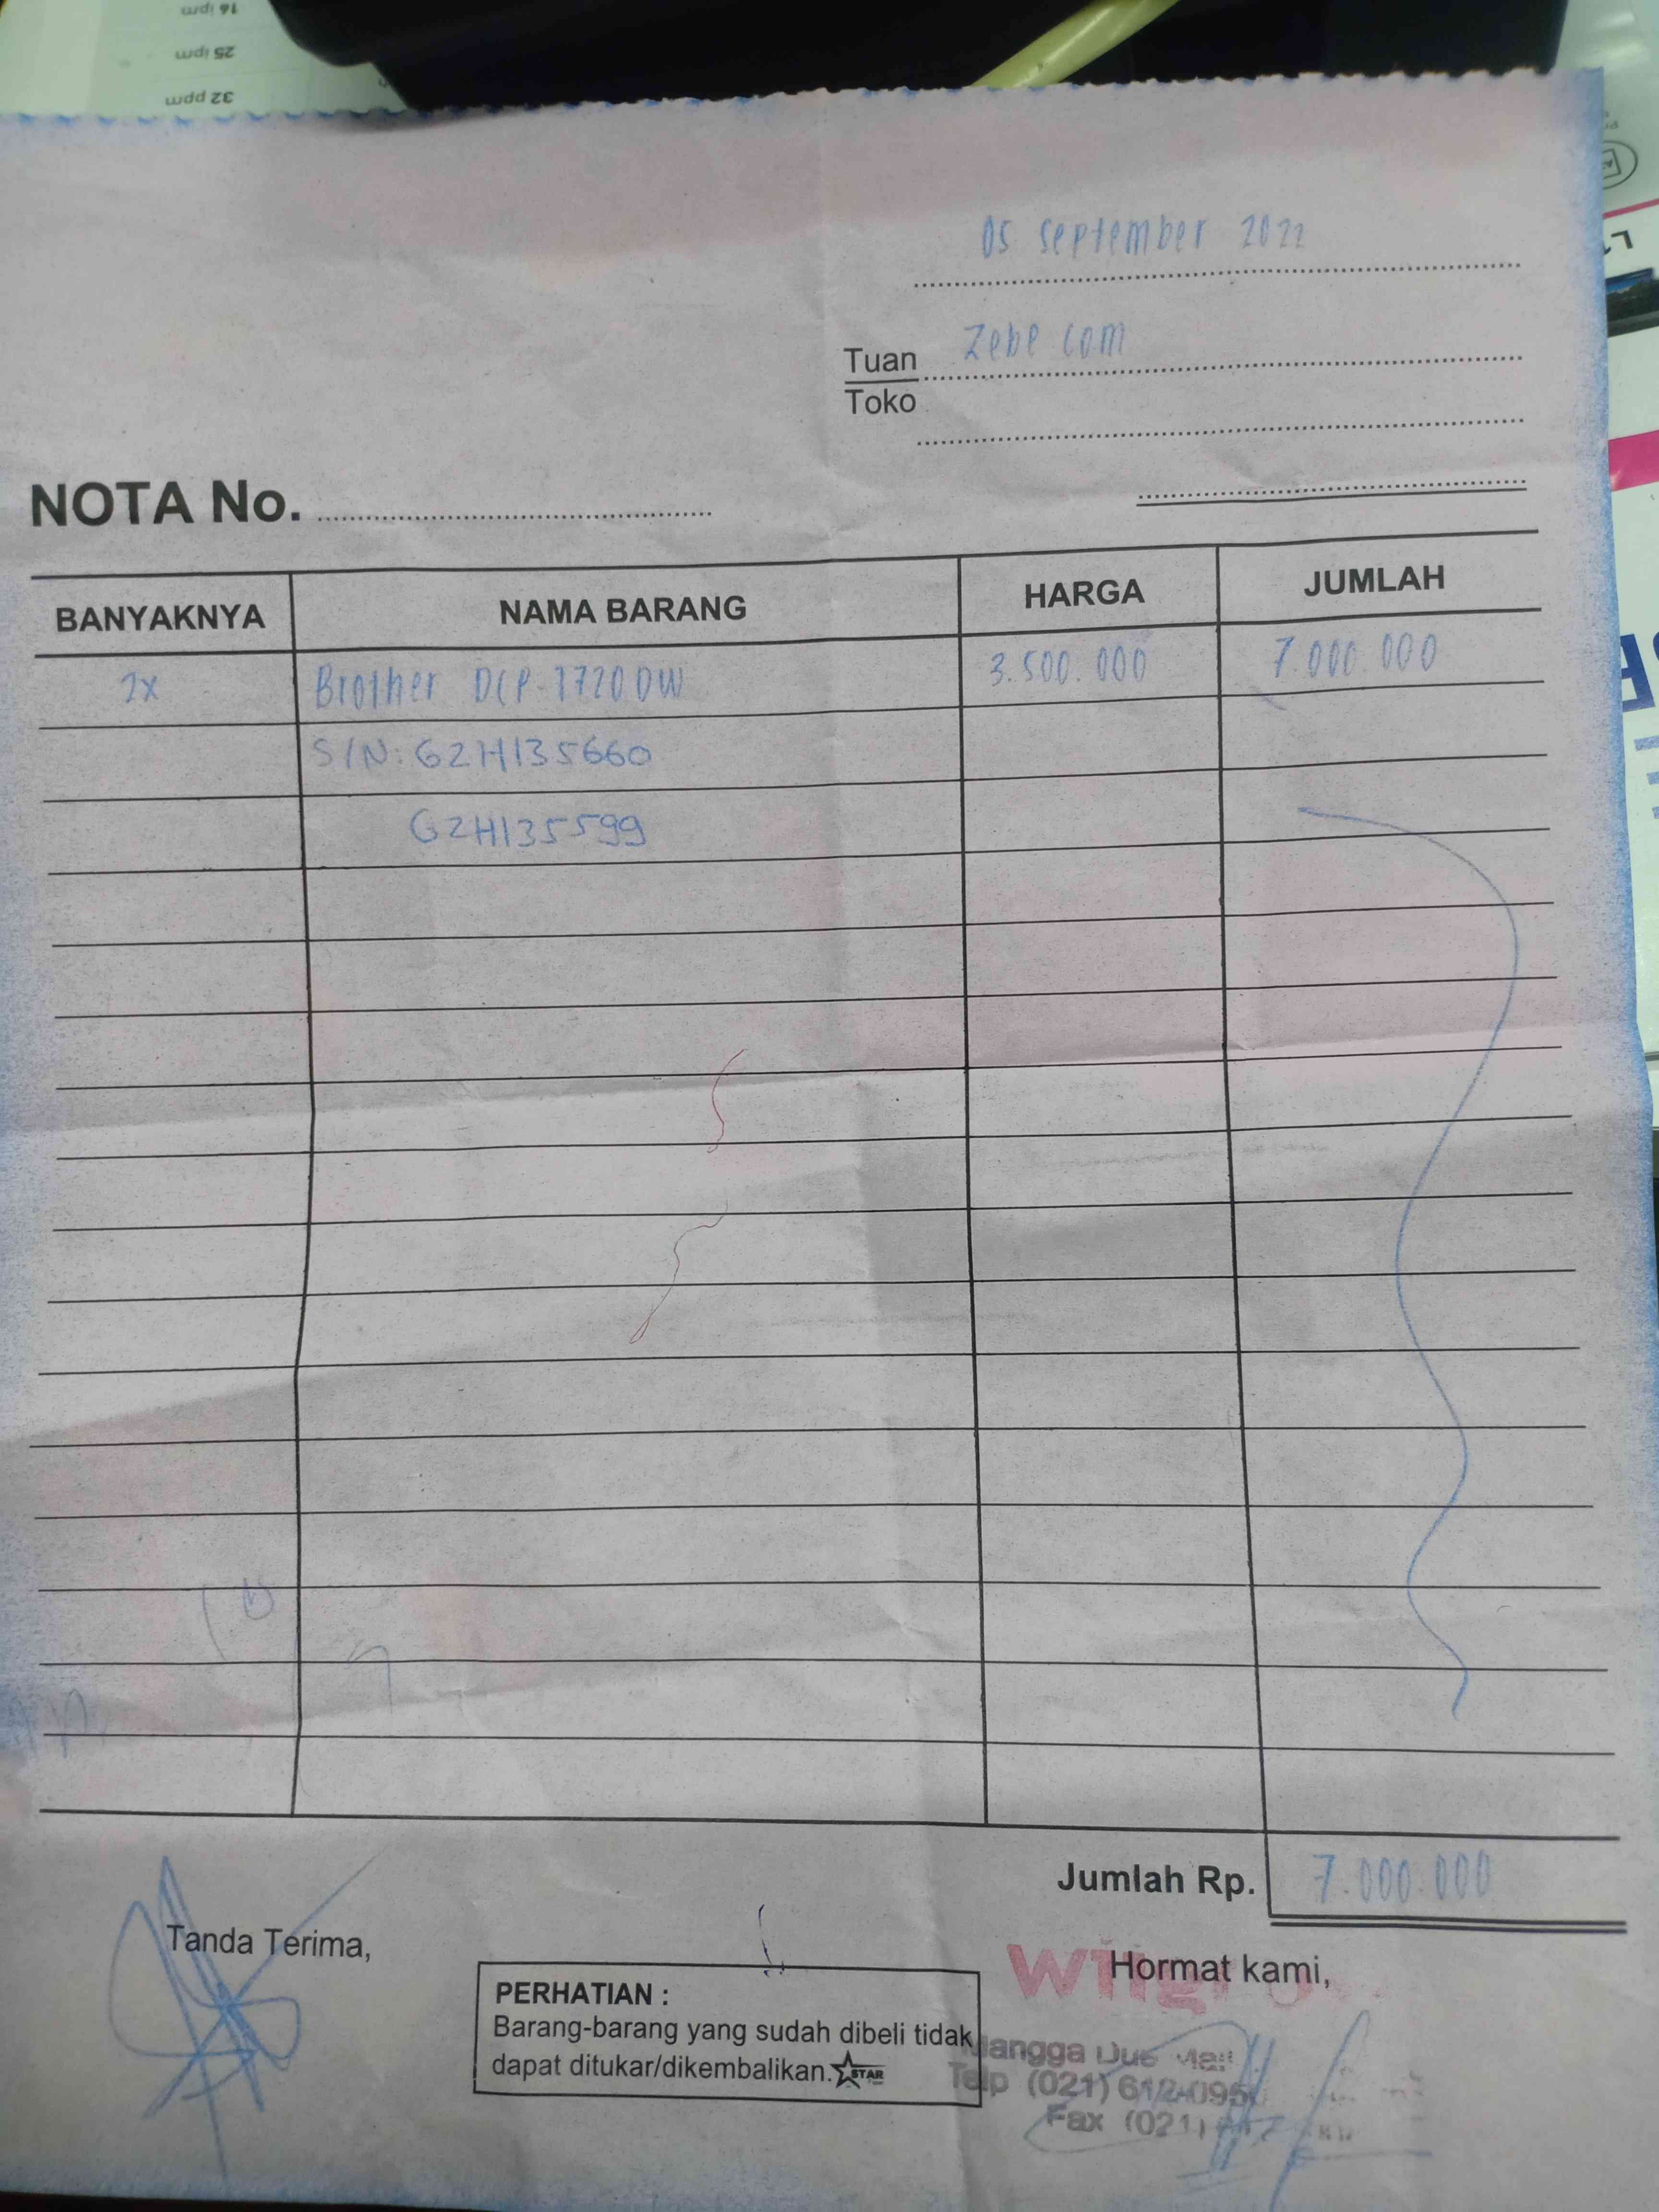 16 ipm
25 ipm
32 ppm
05 September 2022
Tuan Zebe com
Toko
NOTA No.
BANYAKNYA NAMA BARANG HARGA JUMLAH
2x Brother DCP-T720DW 3.500.000 7.000.000
S/N: G2H135660
G2H135599
Jumlah Rp. 7.000.000
Tanda Terima,
Hormat kami,
PERHATIAN :
Barang-barang yang sudah dibeli tidak
dapat ditukar/dikembalikan. STAR
Mangga Dua Mall
Telp (021) 612-095
Fax (021)